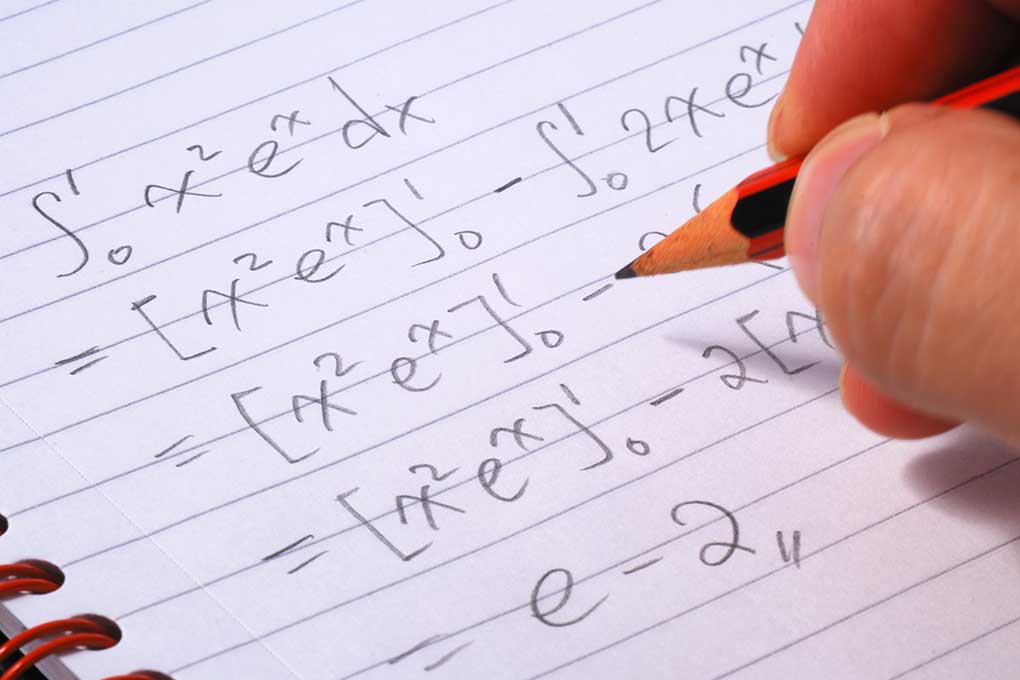 ∫₀¹ x² eˣ dx
= [x² eˣ]₀¹ - ∫₀¹ 2x eˣ
= [x² eˣ]₀¹ - 2
= [x² eˣ]₀¹ - 2[x
= e - 2 〃